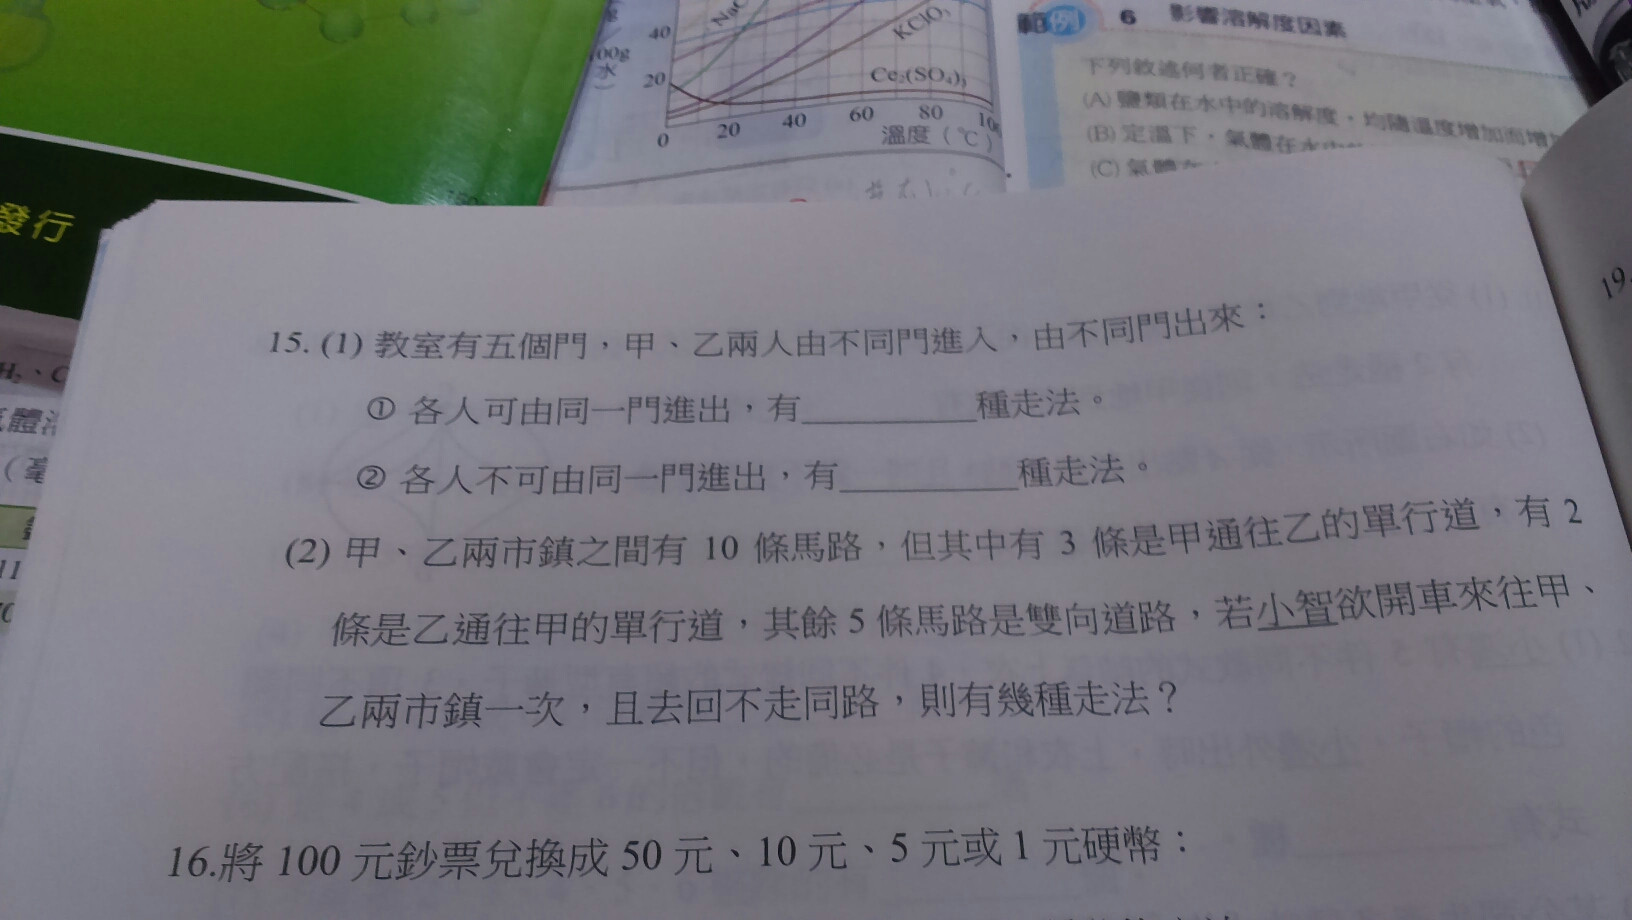 40
20
0
20
40
60
80
水
溫度(℃)
KClO₃
Ce₂(SO₄)₃
範例 6 影響溶解度因素
下列敘述何者正確?
(A) 鹽類在水中的溶解度,均隨溫度增加而增
(B) 定溫下,氣體在水
(C) 氣體
發行
15. (1) 教室有五個門,甲、乙兩人由不同門進入,由不同門出來:
① 各人可由同一門進出,有__________種走法。
② 各人不可由同一門進出,有__________種走法。
(2) 甲、乙兩市鎮之間有 10 條馬路,但其中有 3 條是甲通往乙的單行道,有 2
條是乙通往甲的單行道,其餘 5 條馬路是雙向道路,若小智欲開車來往甲、
乙兩市鎮一次,且去回不走同路,則有幾種走法?
16.將 100 元鈔票兌換成 50 元、10 元、5 元或 1 元硬幣:
19.